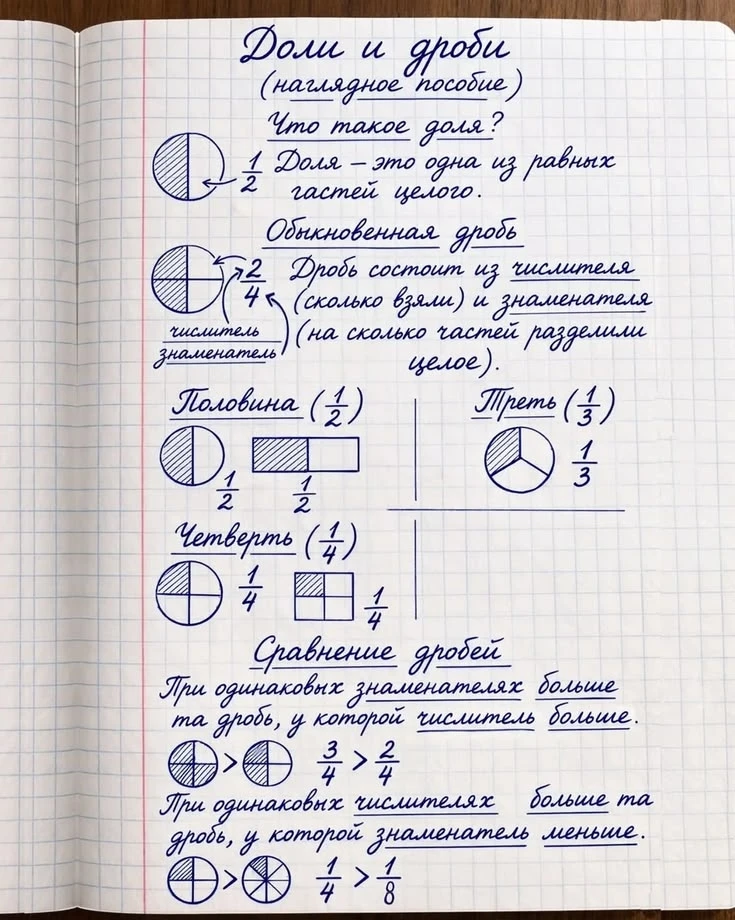 Доли и дроби
(наглядное пособие)
Что такое доля?
1/2 Доля – это одна из равных
гастей целого.
Обыкновенная дробь
2/4 Дробь состоит из числителя
(сколько взяли) и знаменателя
числитель
знаменатель
(на сколько частей разделили
целое).
Половина (1/2)
1/2 1/2
Треть (1/3)
1/3
Четверть (1/4)
1/4 1/4
Сравнение дробей
При одинаковых знаменателях больше
та дробь, у которой числитель больше.
> 3/4 > 2/4
При одинаковых числителях больше та
дробь, у которой знаменатель меньше.
> 1/4 > 1/8